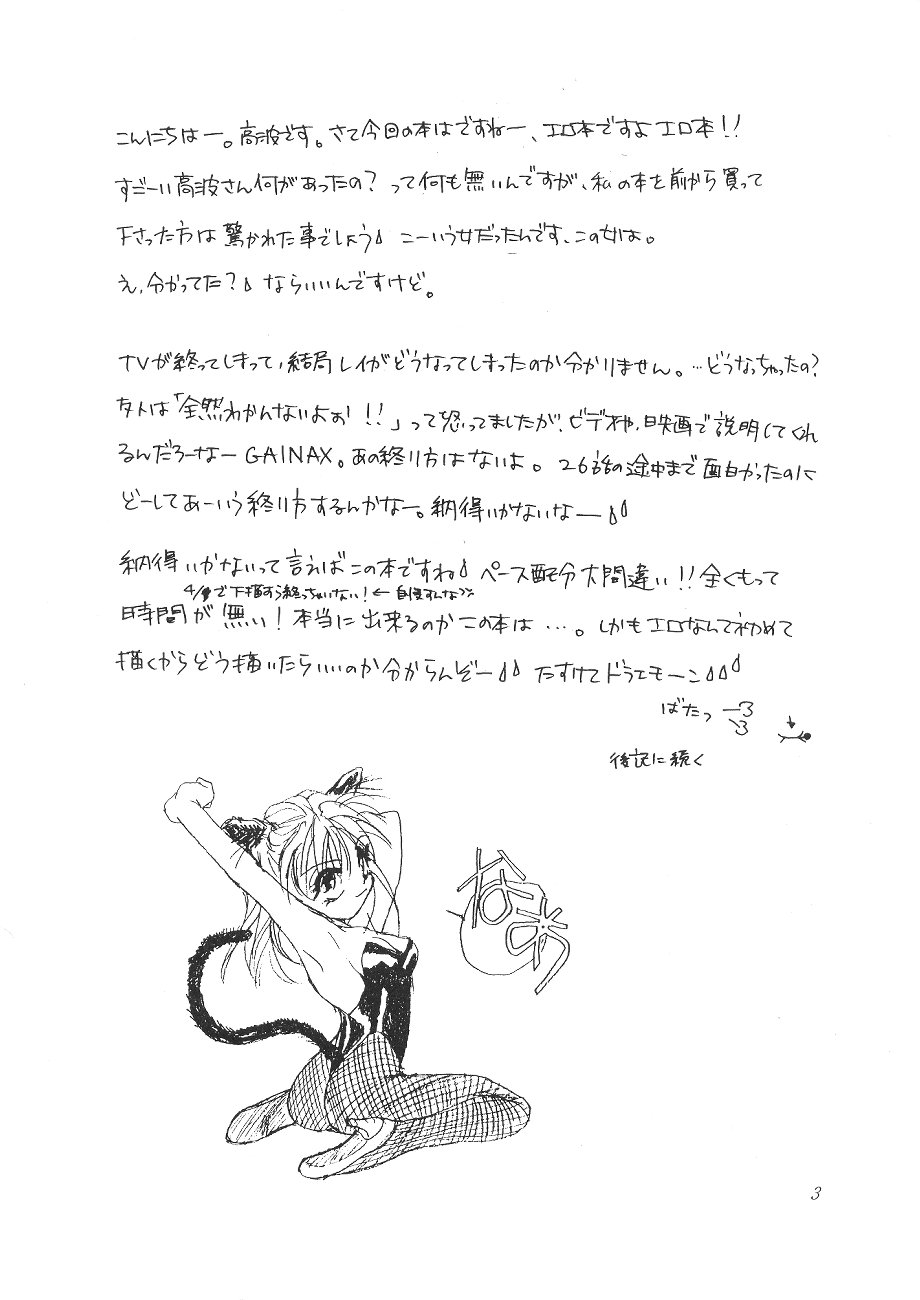 こんにちはー。高波です。さて今回の本はですねー、エロ本ですよエロ本!!
すごーい高波さん何があったの?って何も無いんですが、私の本を前から買って
下さった方は驚かれた事でしょう こーいう女だったんです、この女は。
え、分かってた? ならいいんですけど。
TVが終ってしまって、結局レイがどうなってしまったのか分かりません。…どうなっちゃったの?
友人は「全然わかんないよぉ!!」って怒ってましたが、ビデオや、映画で説明してくれ
るんだろーなーGAINAX。あの終り方はないよ。26話の途中まで面白かったのに
どーしてあーいう終り方するんかなー。納得いかないなー
納得いかないって言えばこの本ですね ペース配分大間違い!!全くもって
4/ で下描すら終っちゃいない!←自慢すんなっ
時間が無い!本当に出来るのかこの本は…。しかもエロなんて初めて
描くからどう描いたらいいのか分からんぞー たすけてドラエモーン
ばたっ
後記に続く
3